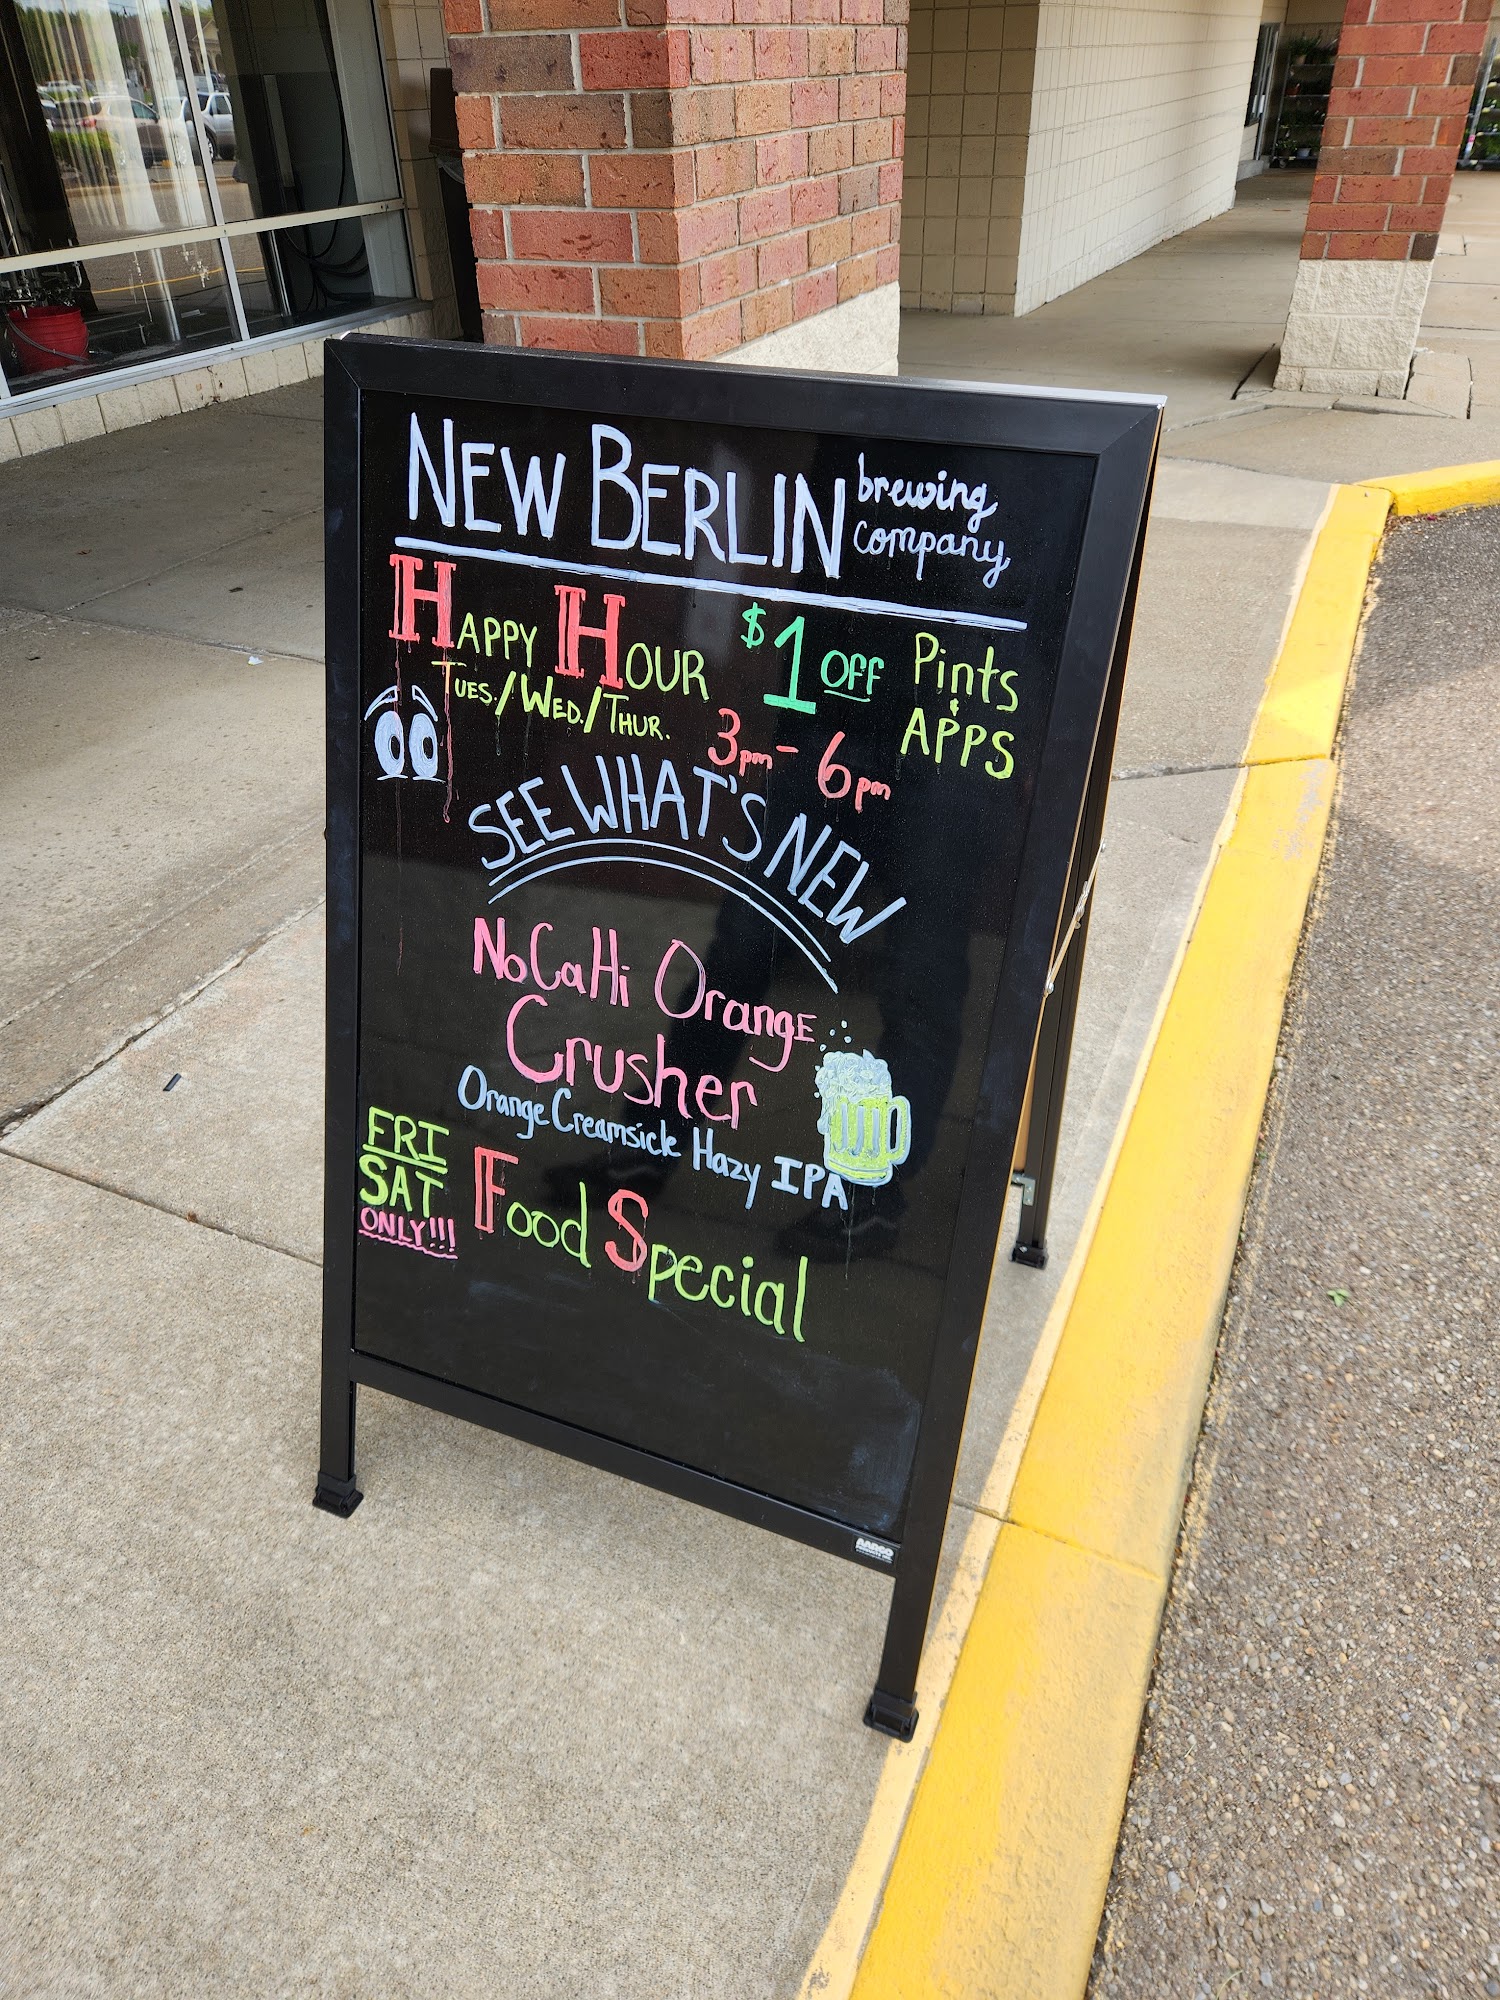 NEW BERLIN brewing company
HAPPY HOUR $1 OFF Pints & APPS
TUES./WED./THUR. 3pm - 6pm
SEE WHAT'S NEW
NoCaHi OrangE
Crusher
Orange Creamsicle Hazy IPA
FRI
SAT
ONLY!!!
Food Special
AARCO